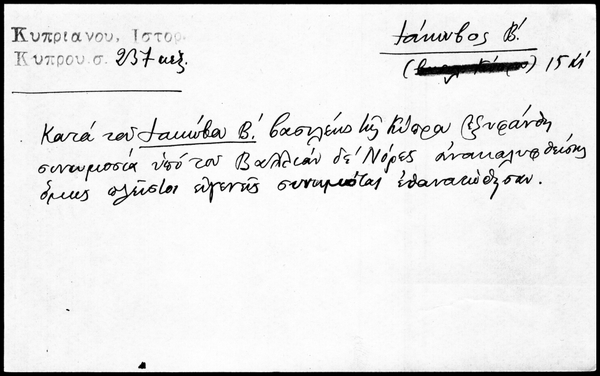 Κυπριανου, Ιστορ.
Κυπρου σ. 237 κεξ.
Ιάκωβος Β!
15 αί
Κατά του Ιακώβου Β! βασιλέως της Κύπρου εξυφάνθη
συνωμοσία ὑπό του Βαλλιάν δέ Νόρες ἀνακαλυφθείσης
ὅμως πλεῖστοι εὐγενεῖς συνωμόται ἐθανατώθησαν.